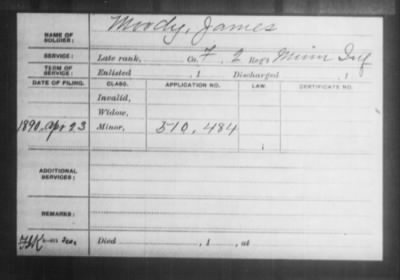 NAME OF SOLDIER: Moody, James
SERVICE: Late rank, Co. F, 2 Reg't Minn Inf
TERM OF SERVICE: Enlisted , 1 Discharged , 1
DATE OF FILING. CLASS. APPLICATION NO. LAW. CERTIFICATE NO.
Invalid,
Widow,
1890, Apr 23 Minor, 510,484
ADDITIONAL SERVICES:
REMARKS:
Died , 1 , at